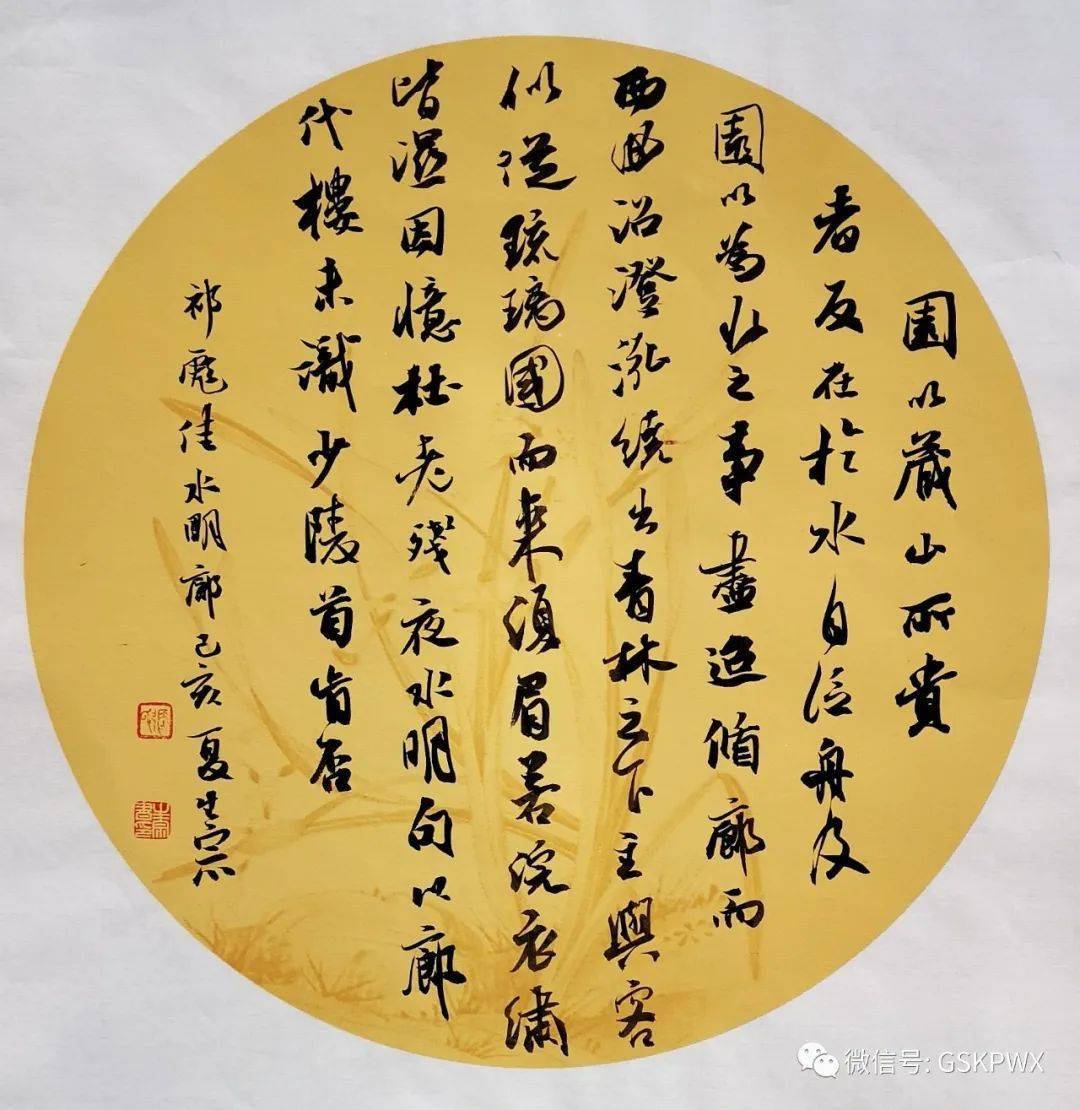 園以藏山所貴
者反在於水自泛舟及
園以為水之事盡迨循廊而
西曲沼澄泓繞出青林之下主與客
似從琉璃國而來須眉若浣衣繡
皆濕因憶杜老殘夜水明句以廊
代樓未識少陵首肯否
祁彪佳水明廊己亥夏
微信号: GSKPWX